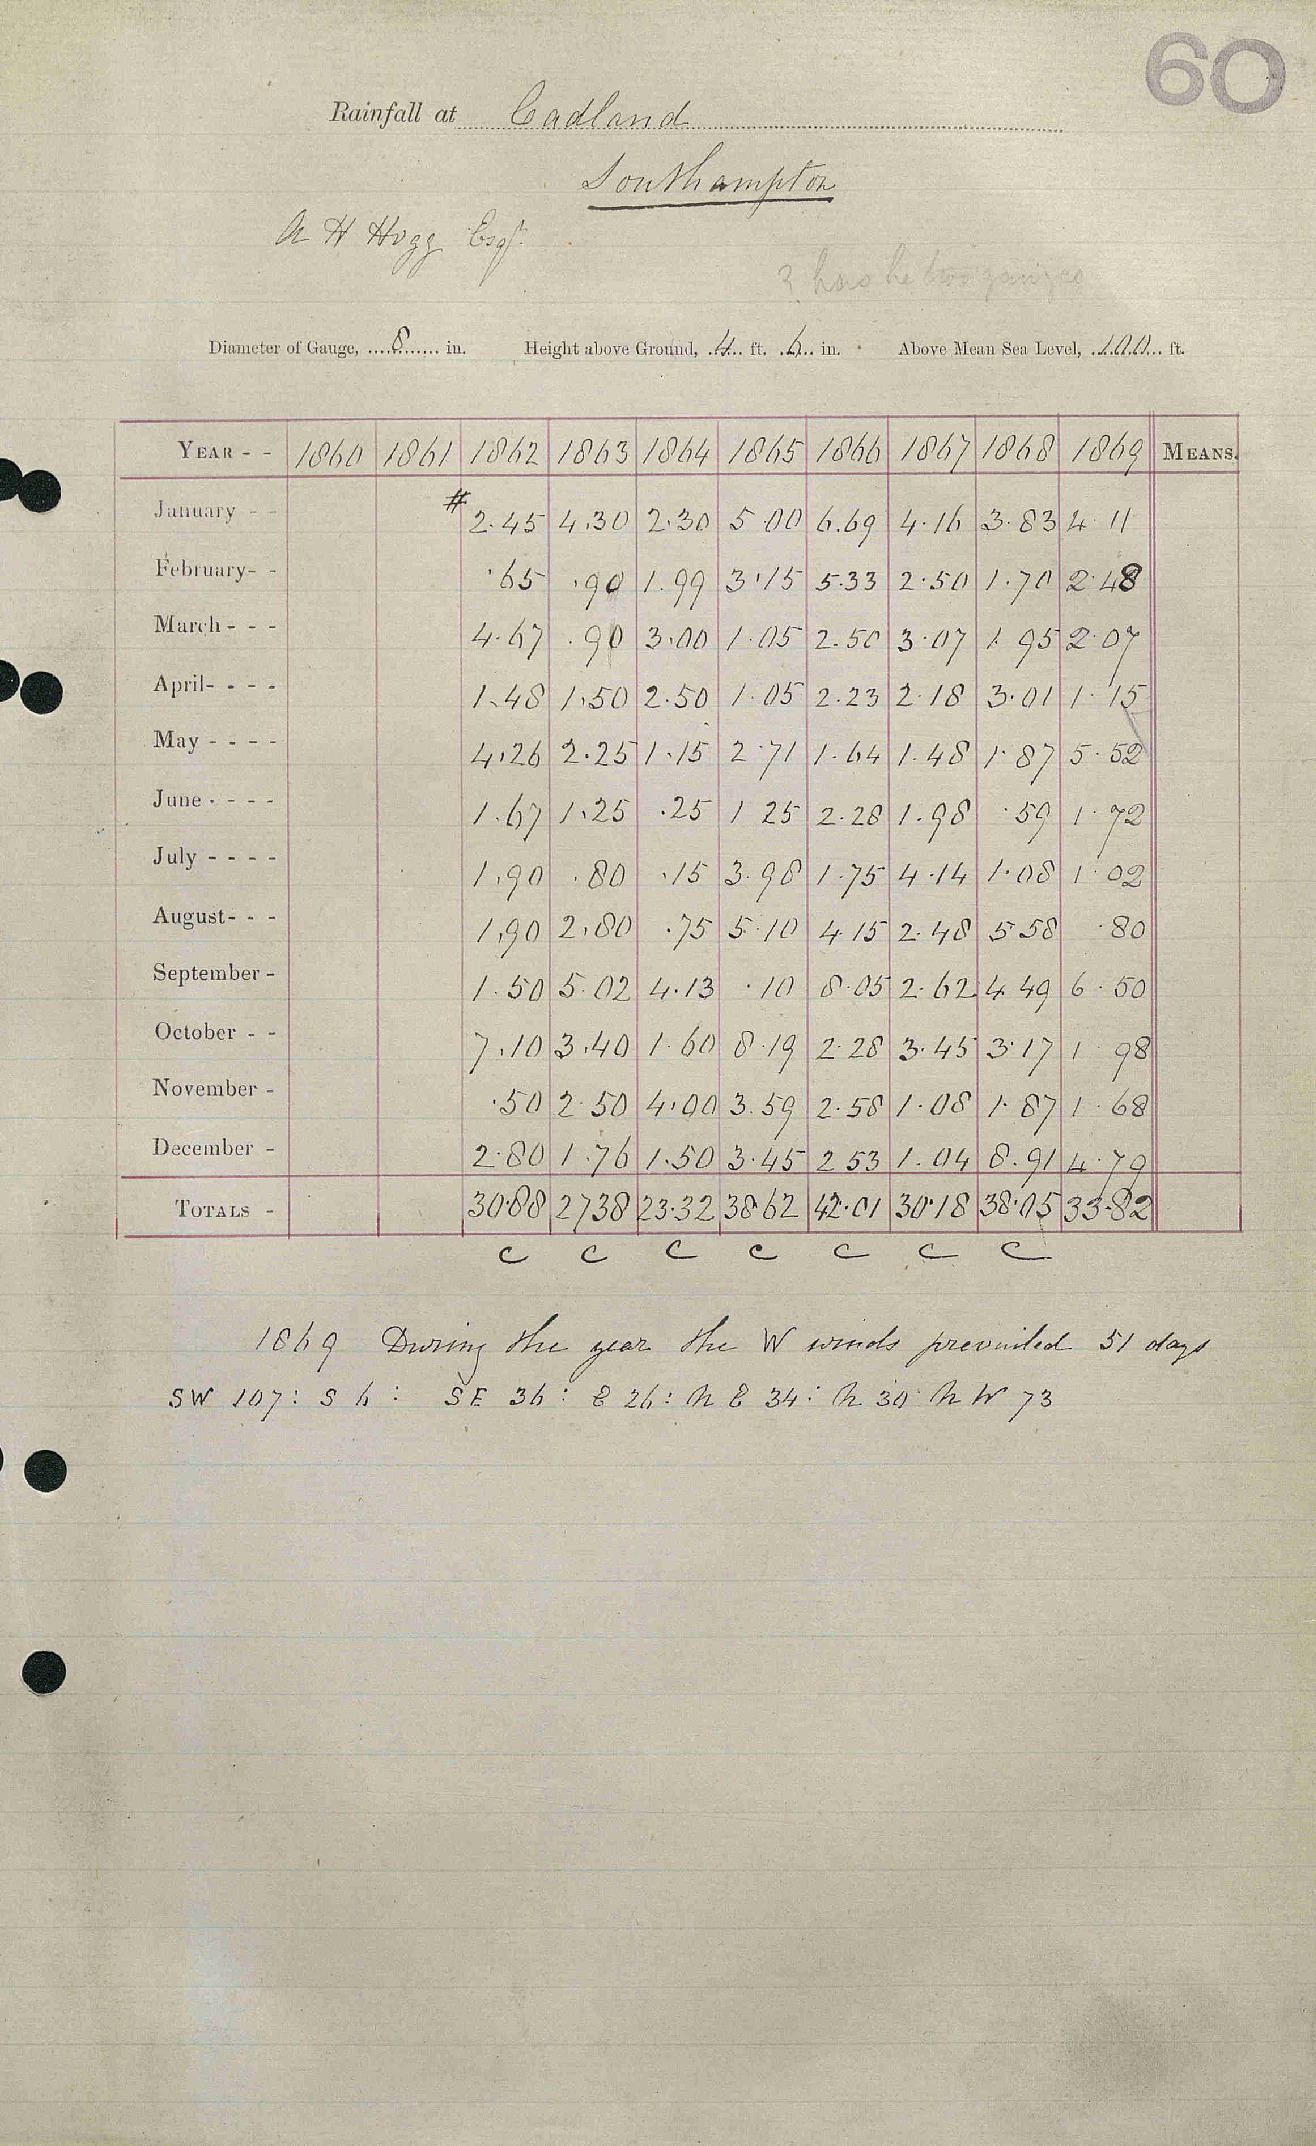 60
Rainfall at Cadland
Southampton
A H Hogg Esqr.
? has he two gauges
Diameter of Gauge, 8 in. Height above Ground, 4 ft. 6 in. Above Mean Sea Level, 100 ft.
YEAR - - 1860 1861 1862 1863 1864 1865 1866 1867 1868 1869 MEANS.
January - - # 2.45 4.30 2.30 5 00 6.69 4.16 3.83 4 11
February- - .65 .90 1.99 3.15 5.33 2.50 1.70 2.48
March - - - 4.67 .90 3.00 1.05 2.50 3.07 1.95 2.07
April- - - - 1.48 1.50 2.50 1.05 2.23 2.18 3.01 1.15
May - - - - 4.26 2.25 1.15 2.71 1.64 1.48 1.87 5.52
June - - - - 1.67 1.25 .25 1 25 2.28 1.98 .59 1.72
July - - - - 1.90 .80 .15 3.98 1.75 4.14 1.08 1.02
August- - - 1.90 2.80 .75 5.10 4.15 2.48 5.58 .80
September - 1.50 5.02 4.13 .10 8.05 2.62 4.49 6.50
October - - 7.10 3.40 1.60 8.19 2.28 3.45 3.17 1 98
November - .50 2.50 4.00 3.59 2.58 1.08 1.87 1.68
December - 2.80 1.76 1.50 3.45 2 53 1.04 8.91 4.79
TOTALS - 30.88 27 38 23.32 38 62 42.01 30.18 38.05 33.82
c c c c c c c
1869 During the year the W winds prevailed 51 days
SW 107: S 6: SE 36: E 26: N E 34: N 30: N W 73